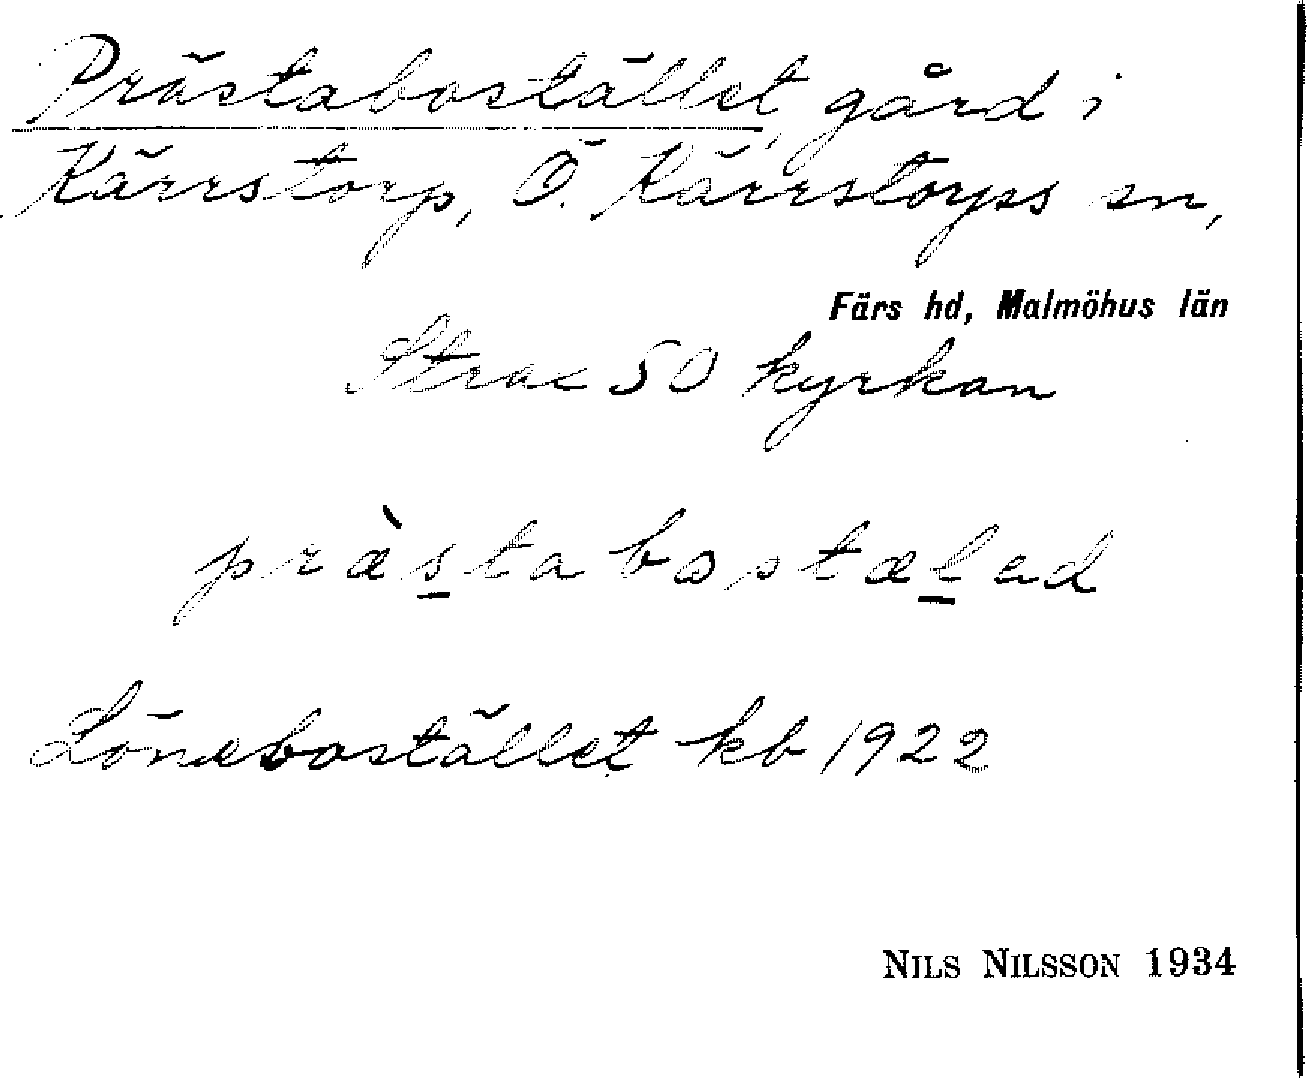 Prästabostället, gård i
Kärrstorp, Ö. Kärrstorps sn,
Färs hd, Malmöhus län
Strax SO kyrkan
præ̀stabostælad
Lönebostället kb 1922
NILS NILSSON 1934